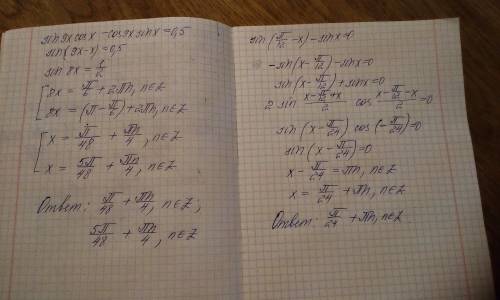 sin9xcosx - cos9xsinx = 0,5
sin(9x-x) = 0,5
sin 8x = 1/2
[ 8x = π/6 + 2πn, n∈Z
8x = (π - π/6) + 2πn, n∈Z
[ x = π/48 + πn/4, n∈Z
x = 5π/48 + πn/4, n∈Z
Ответ: π/48 + πn/4, n∈Z;
5π/48 + πn/4, n∈Z
sin(π/12 - x) - sinx = 0
-sin(x - π/12) - sinx = 0
sin(x - π/12) + sinx = 0
2 sin (x - π/12 + x)/2 cos (x - π/12 - x)/2 = 0
sin(x - π/24) cos(-π/24) = 0
sin(x - π/24) = 0
x - π/24 = πn, n∈Z
x = π/24 + πn, n∈Z
Ответ: π/24 + πn, n∈Z